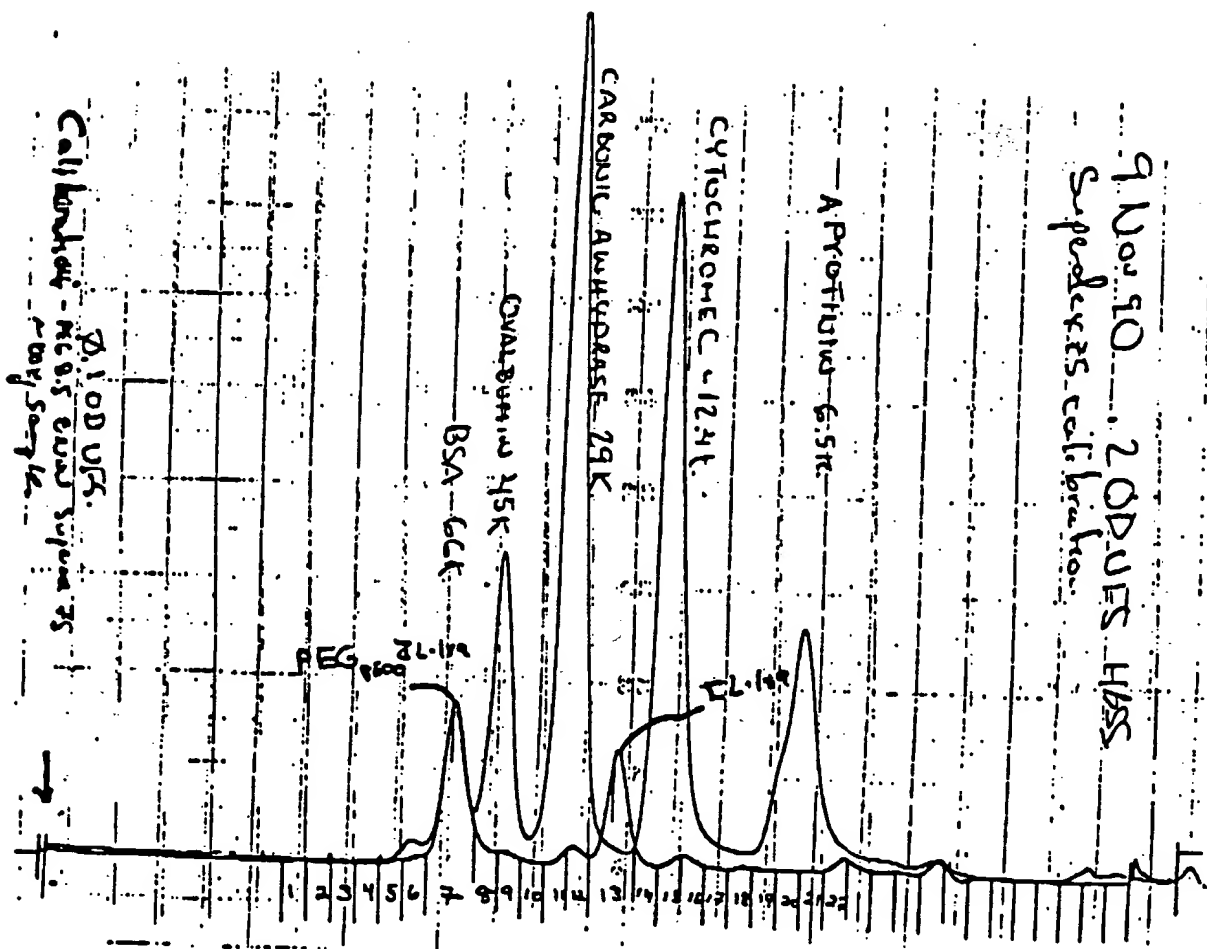 9 Nov 90 .2OD UFS HBSS
Superdex 75 calibration
APROTININ 6.5K
CYTOCHROME C 12.4K
CARBONIC ANHYDRASE 29K
OVALBUMIN 45K
BSA 66K
PEG
IL-1ra
0.1 OD UFS.
Calibration -
1 2 3 4 5 6 7 8 9 10 11 12 13 14 15 16 17 18 19 20 21 22